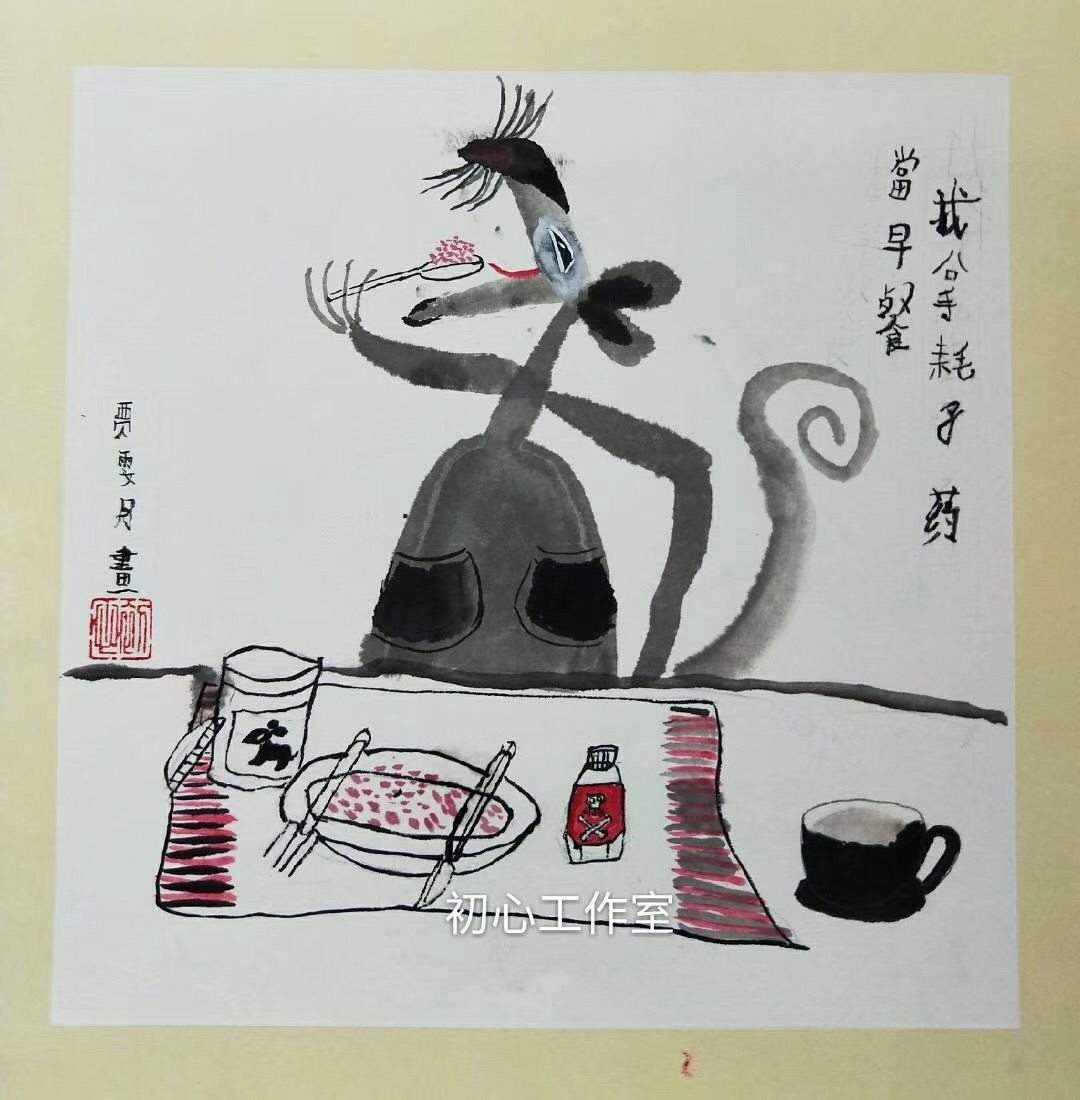 我拿耗子药
當早餐
贾雯月畫
初心工作室